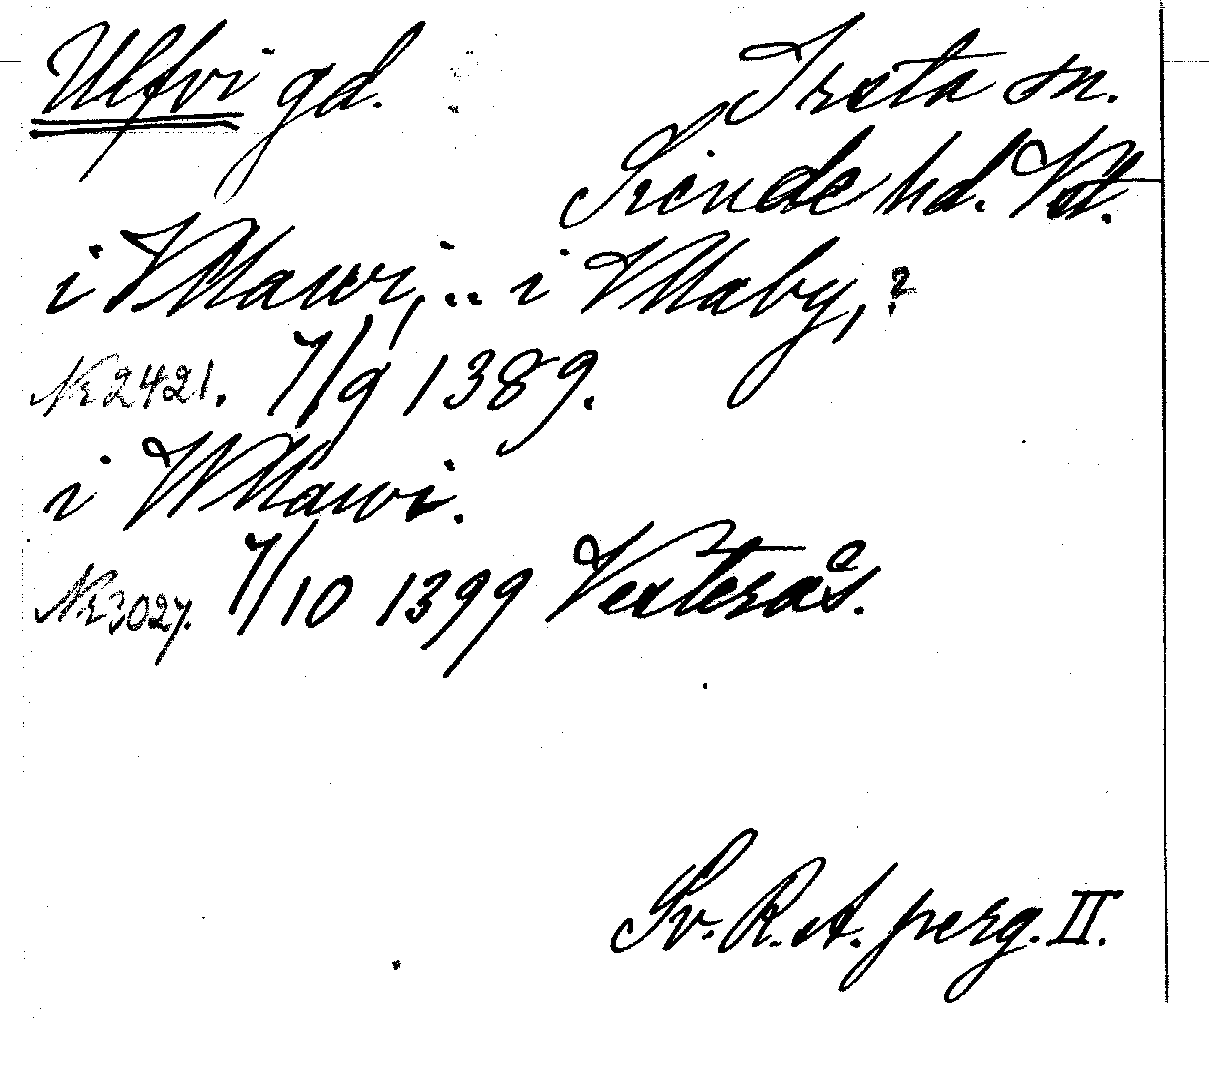 Ulfvi gd.
Irsta sn.
Siende hd. Vstl.
i Vllawi, .. i Vllaby, ?
Nr 2421. 7/9 1389.
i Wllawi.
Nr 3027. 7/10 1399 Vesterås.
Sv. R. A. perg. II.